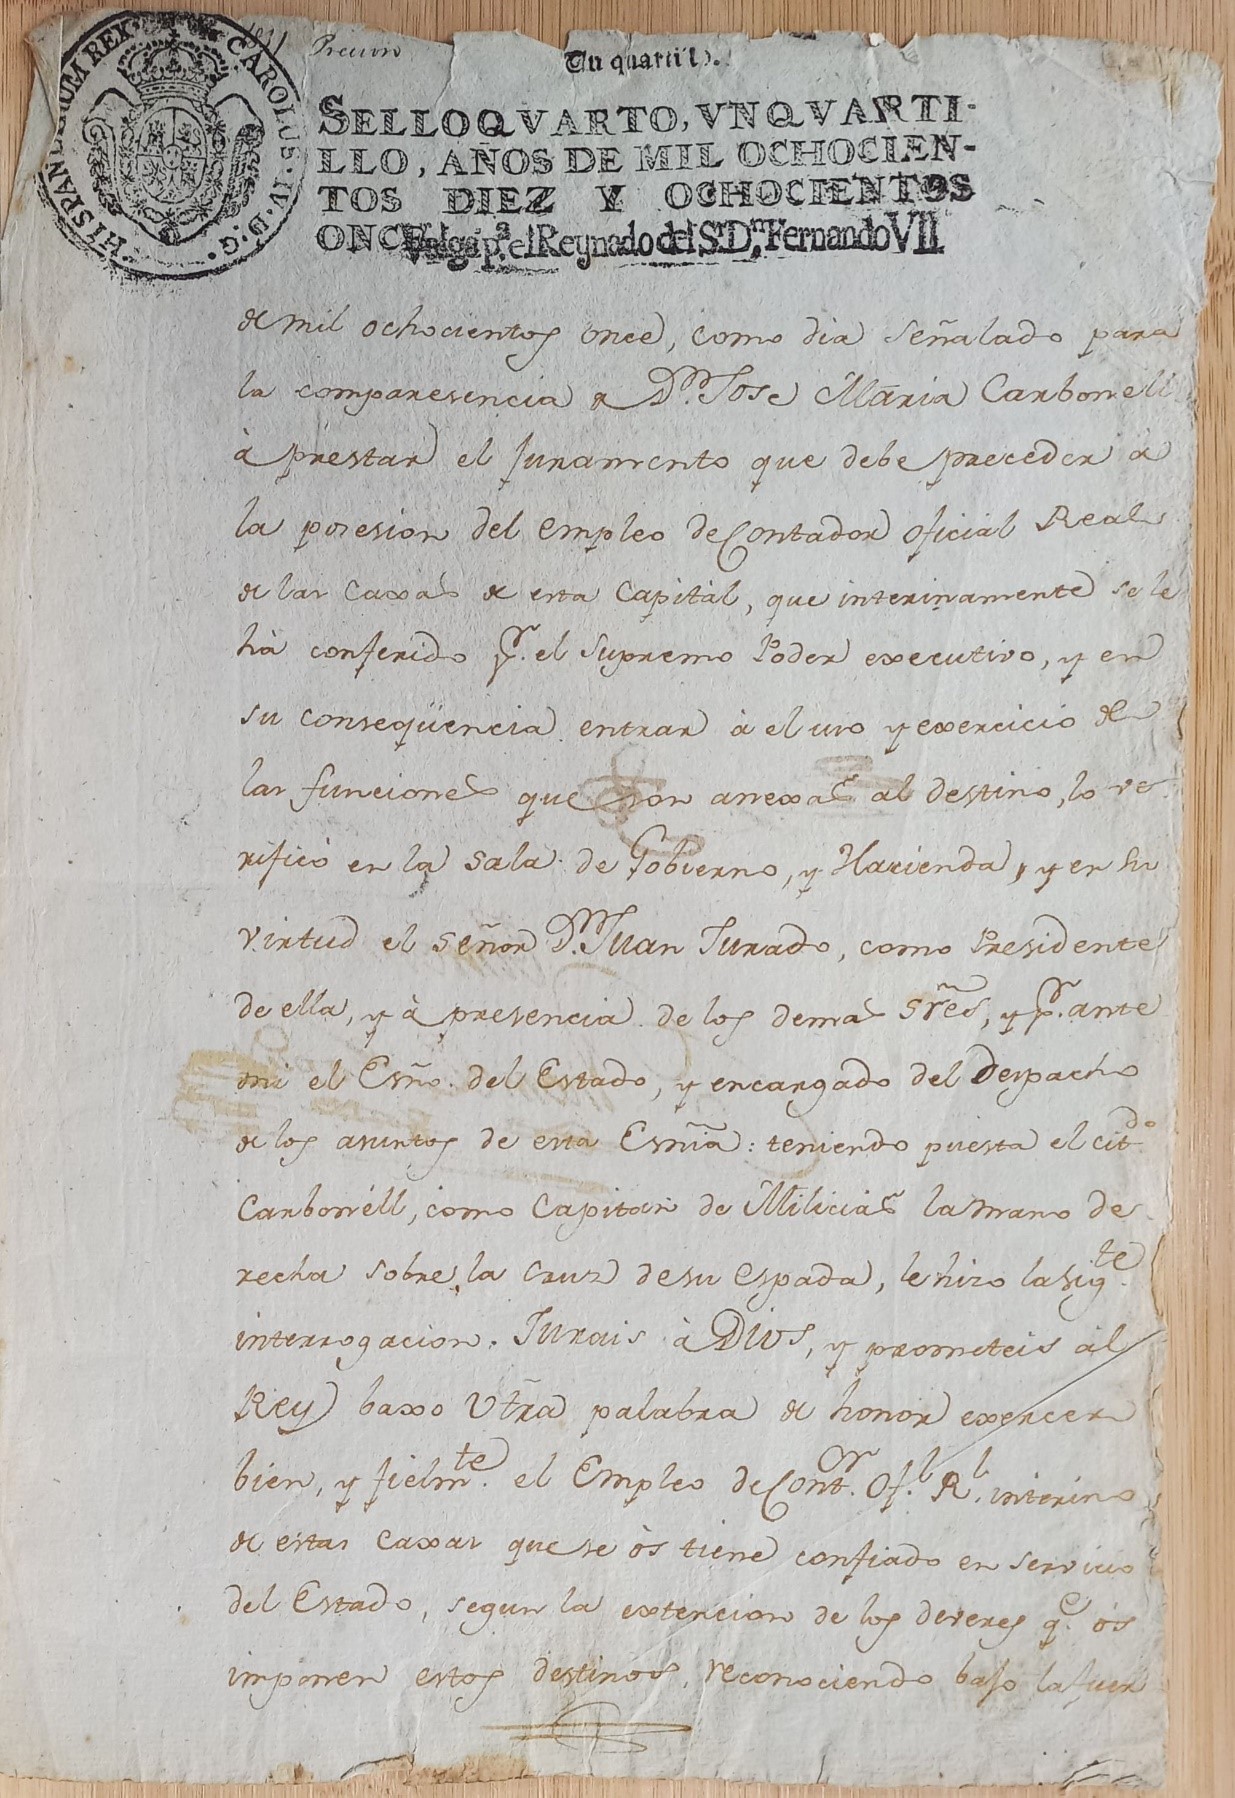 HISPANIARUM REX CAROLUS IV D G
1811
Un quartillo.
SELLO QVARTO, VN QVARTI-
LLO, AÑOS DE MIL OCHOCIEN-
TOS DIEZ Y OCHOCIENTOS
ONCE. Valga pª. el Reynado del Sr. Dn. Fernando VII.
de mil ochocientos once, como dia señalado para
la comparesencia de Dn. Jose Maria Carbonell
à prestar el juramento que debe preceder à
la posesion del empleo de Contador oficial Real
de las Caxas de esta Capital, que interinamente se le
hà conferido pr. el Supremo Poder executivo, y en
su conseqüencia entrar à el uso y exercicio de
las funciones que son anexas al destino, lo ve-
rificó en la Sala de Gobierno, y Hacienda, y en su
virtud el señor Dn. Juan Jurado, como Presidente
de ella, y à presencia de los demas Sres, y pr. ante
mi el Esño. del Estado, y encargado del Despacho
de los asuntos de esta Esñia: teniendo puesta el citdo.
Carbonéll, como Capitan de Milicias la mano de-
recha sobre la cruz de su espada, le hizo la sigte.
interrogacion. Jurais à Dios, y prometeis àl
Rey baxo Vtra palabra de honor exercer
bien, y fielmte. el Empleo de Contor. Ofl. Rl. interino
de estas Caxas que se òs tiene confiado en servicio
del Estado, segun la extencion de los deveres qe. òs
imponen estos destinos, reconociendo bajo la fuer